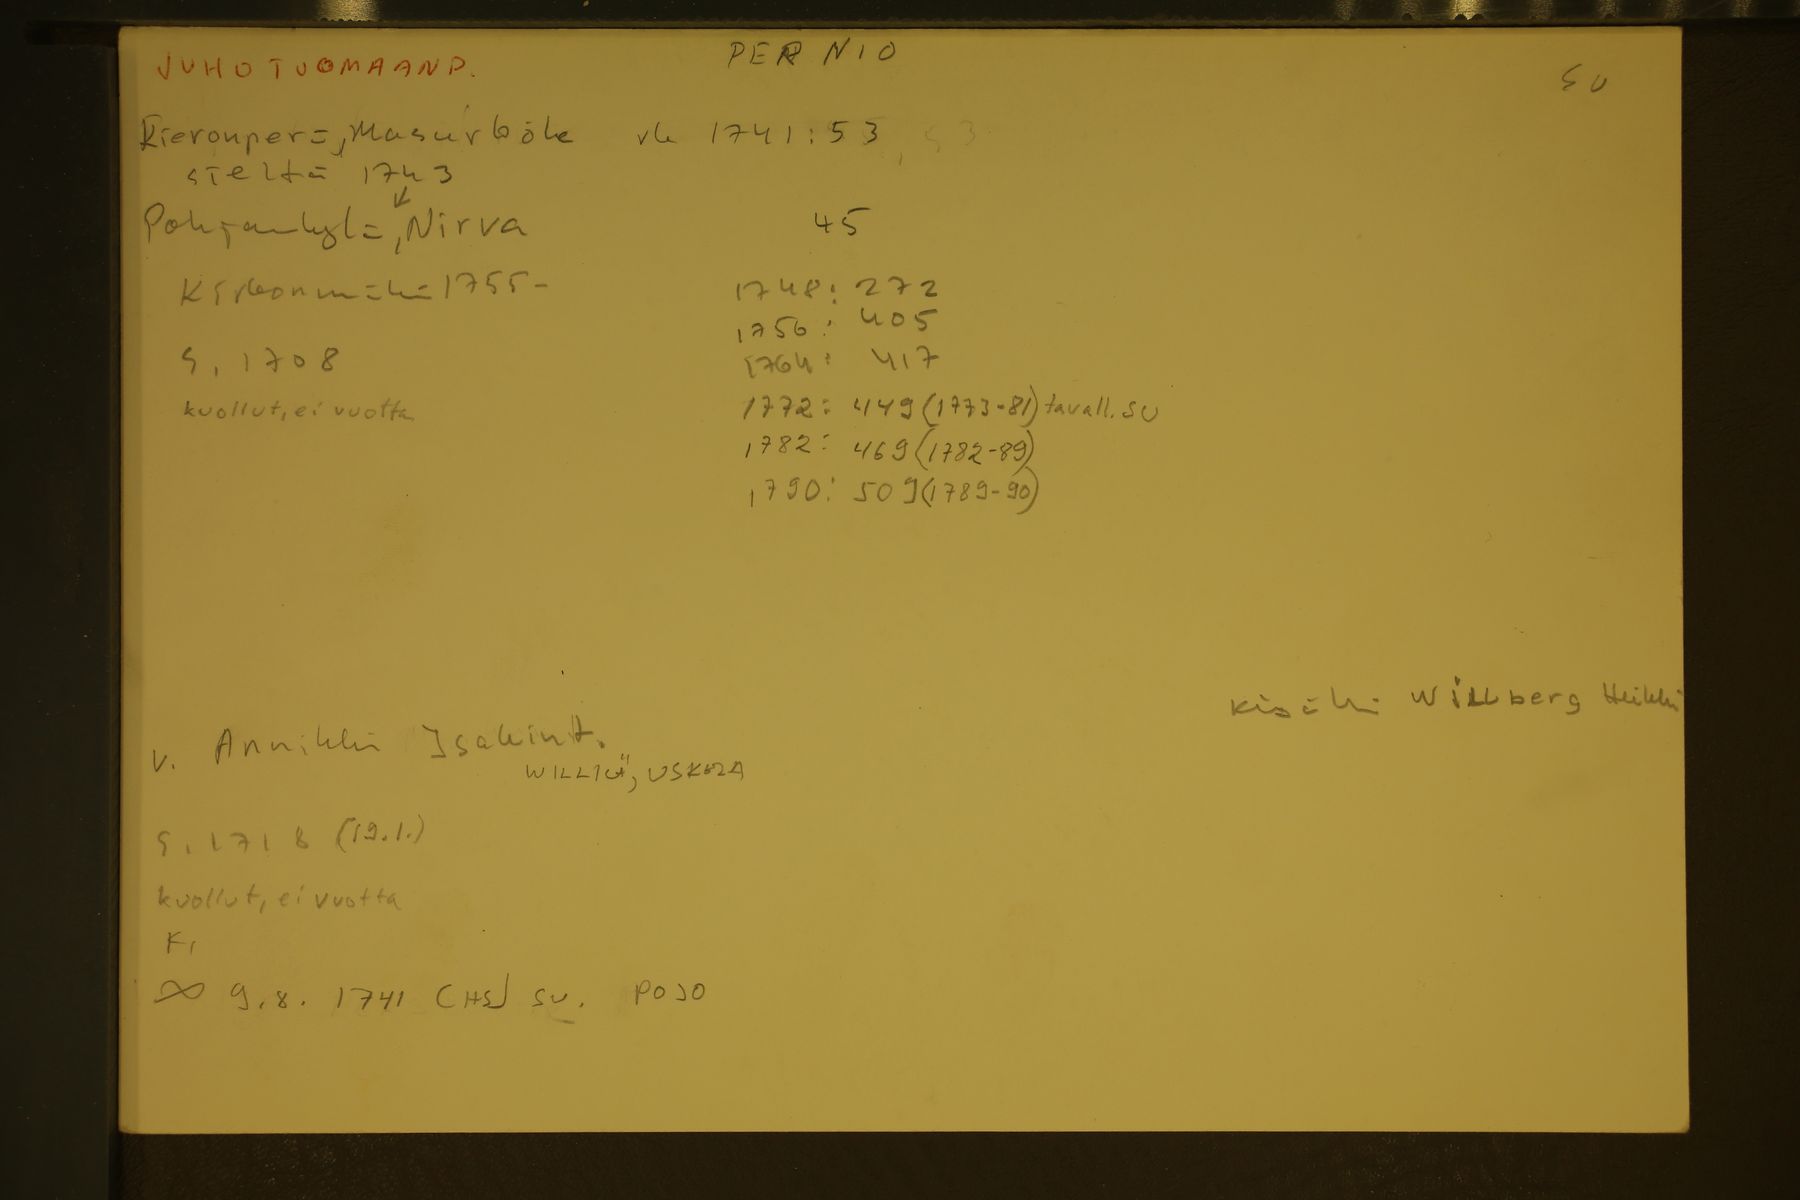 JUHO TUOMAANP.
PERNIÖ
SU
Kieronperä, Masurböle rk 1741: 53, 53
sieltä 1743
Pohjankylä, Nirva 45
Kirkonmäki 1755-
1748: 272
1756: 405
S. 1708
1764: 417
kuollut, ei vuotta
1772: 449 (1773-81) tavall. SU
1782: 469 (1782-89)
1790: 509 (1789-90)
Kisälli Willberg Heikki
v. Annikki Isakint.
USKELA
S. 1718 (19.1.)
kuollut, ei vuotta
K,
∞ 9.8. 1741 (HS) SU. POJO